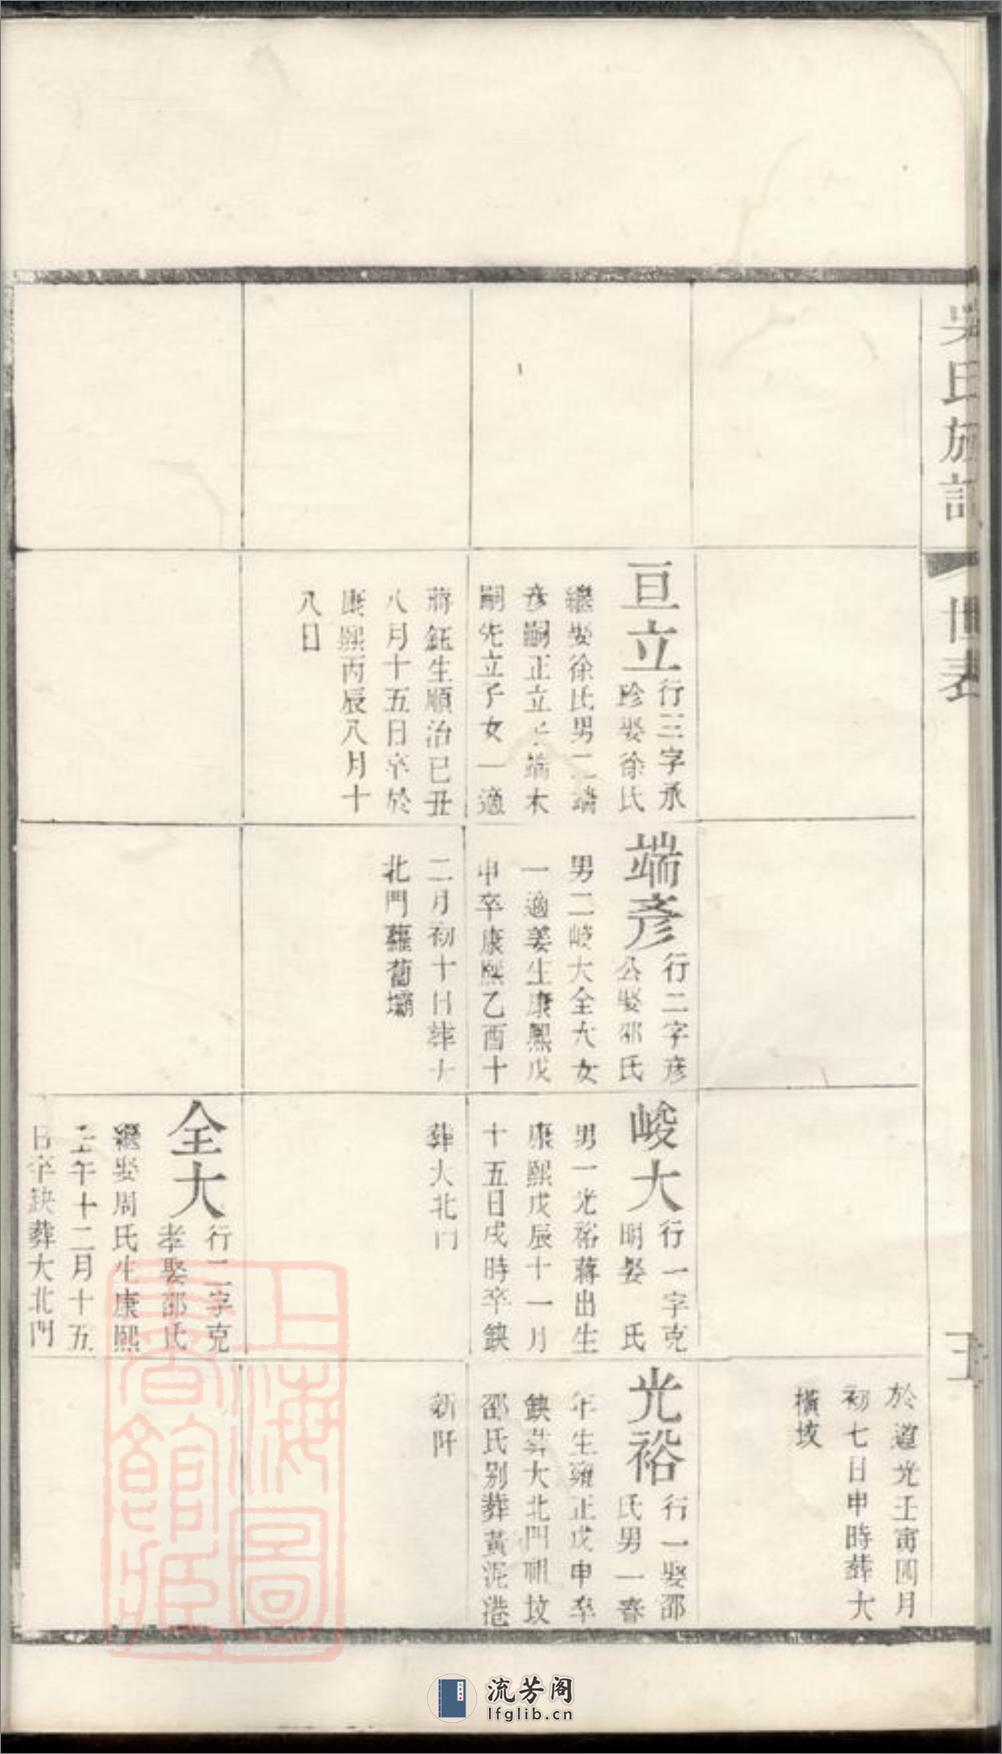 吳氏族譜
世表
亘立
行三字承
珍娶徐氏
繼娶徐氏男二端
彥嗣正立子端木
嗣先立子女一適
蔣鈺生順治己丑
八月十五日卒於
康熙丙辰八月十
八日
端彥
行二字彥
公娶邵氏
男二峻大全大女
一適姜生康熙戊
申卒康熙乙酉十
二月初十日葬大
北門蘿蔔壩
峻大
行一字克
明娶 氏
男一光裕蔣出生
康熙戊辰十一月
十五日戌時卒缺
葬大北門
全大
行二字克
孝娶邵氏
繼娶周氏生康熙
壬午十二月十五
日卒缺葬大北門
於道光壬寅四月
初七日申時葬大
橫垓
光裕
行一娶邵
氏男一春
年生雍正戊申卒
缺葬大北門祖墳
邵氏别葬黃泥港
新阡
上海圖書館藏
流芳阁
lfglib.cn